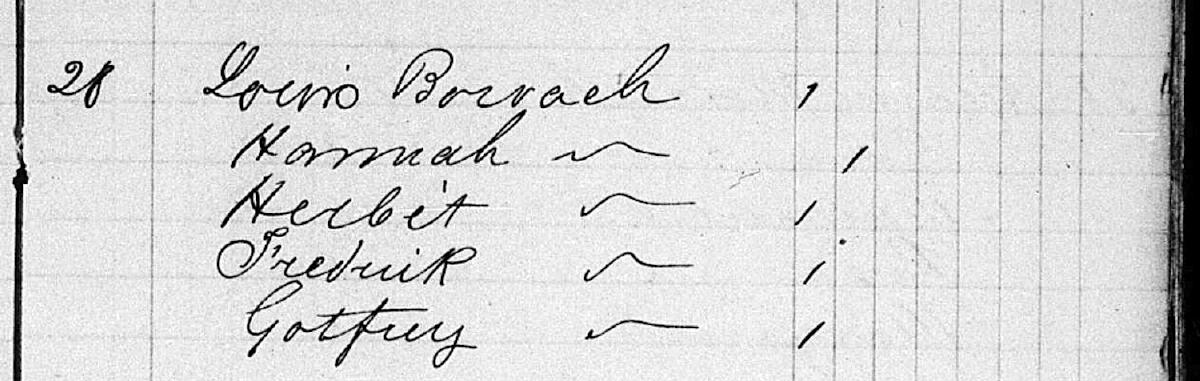 28 Louis Borvach
Hannah 〃
Herbet 〃
Fredrik 〃
Gotfrey 〃